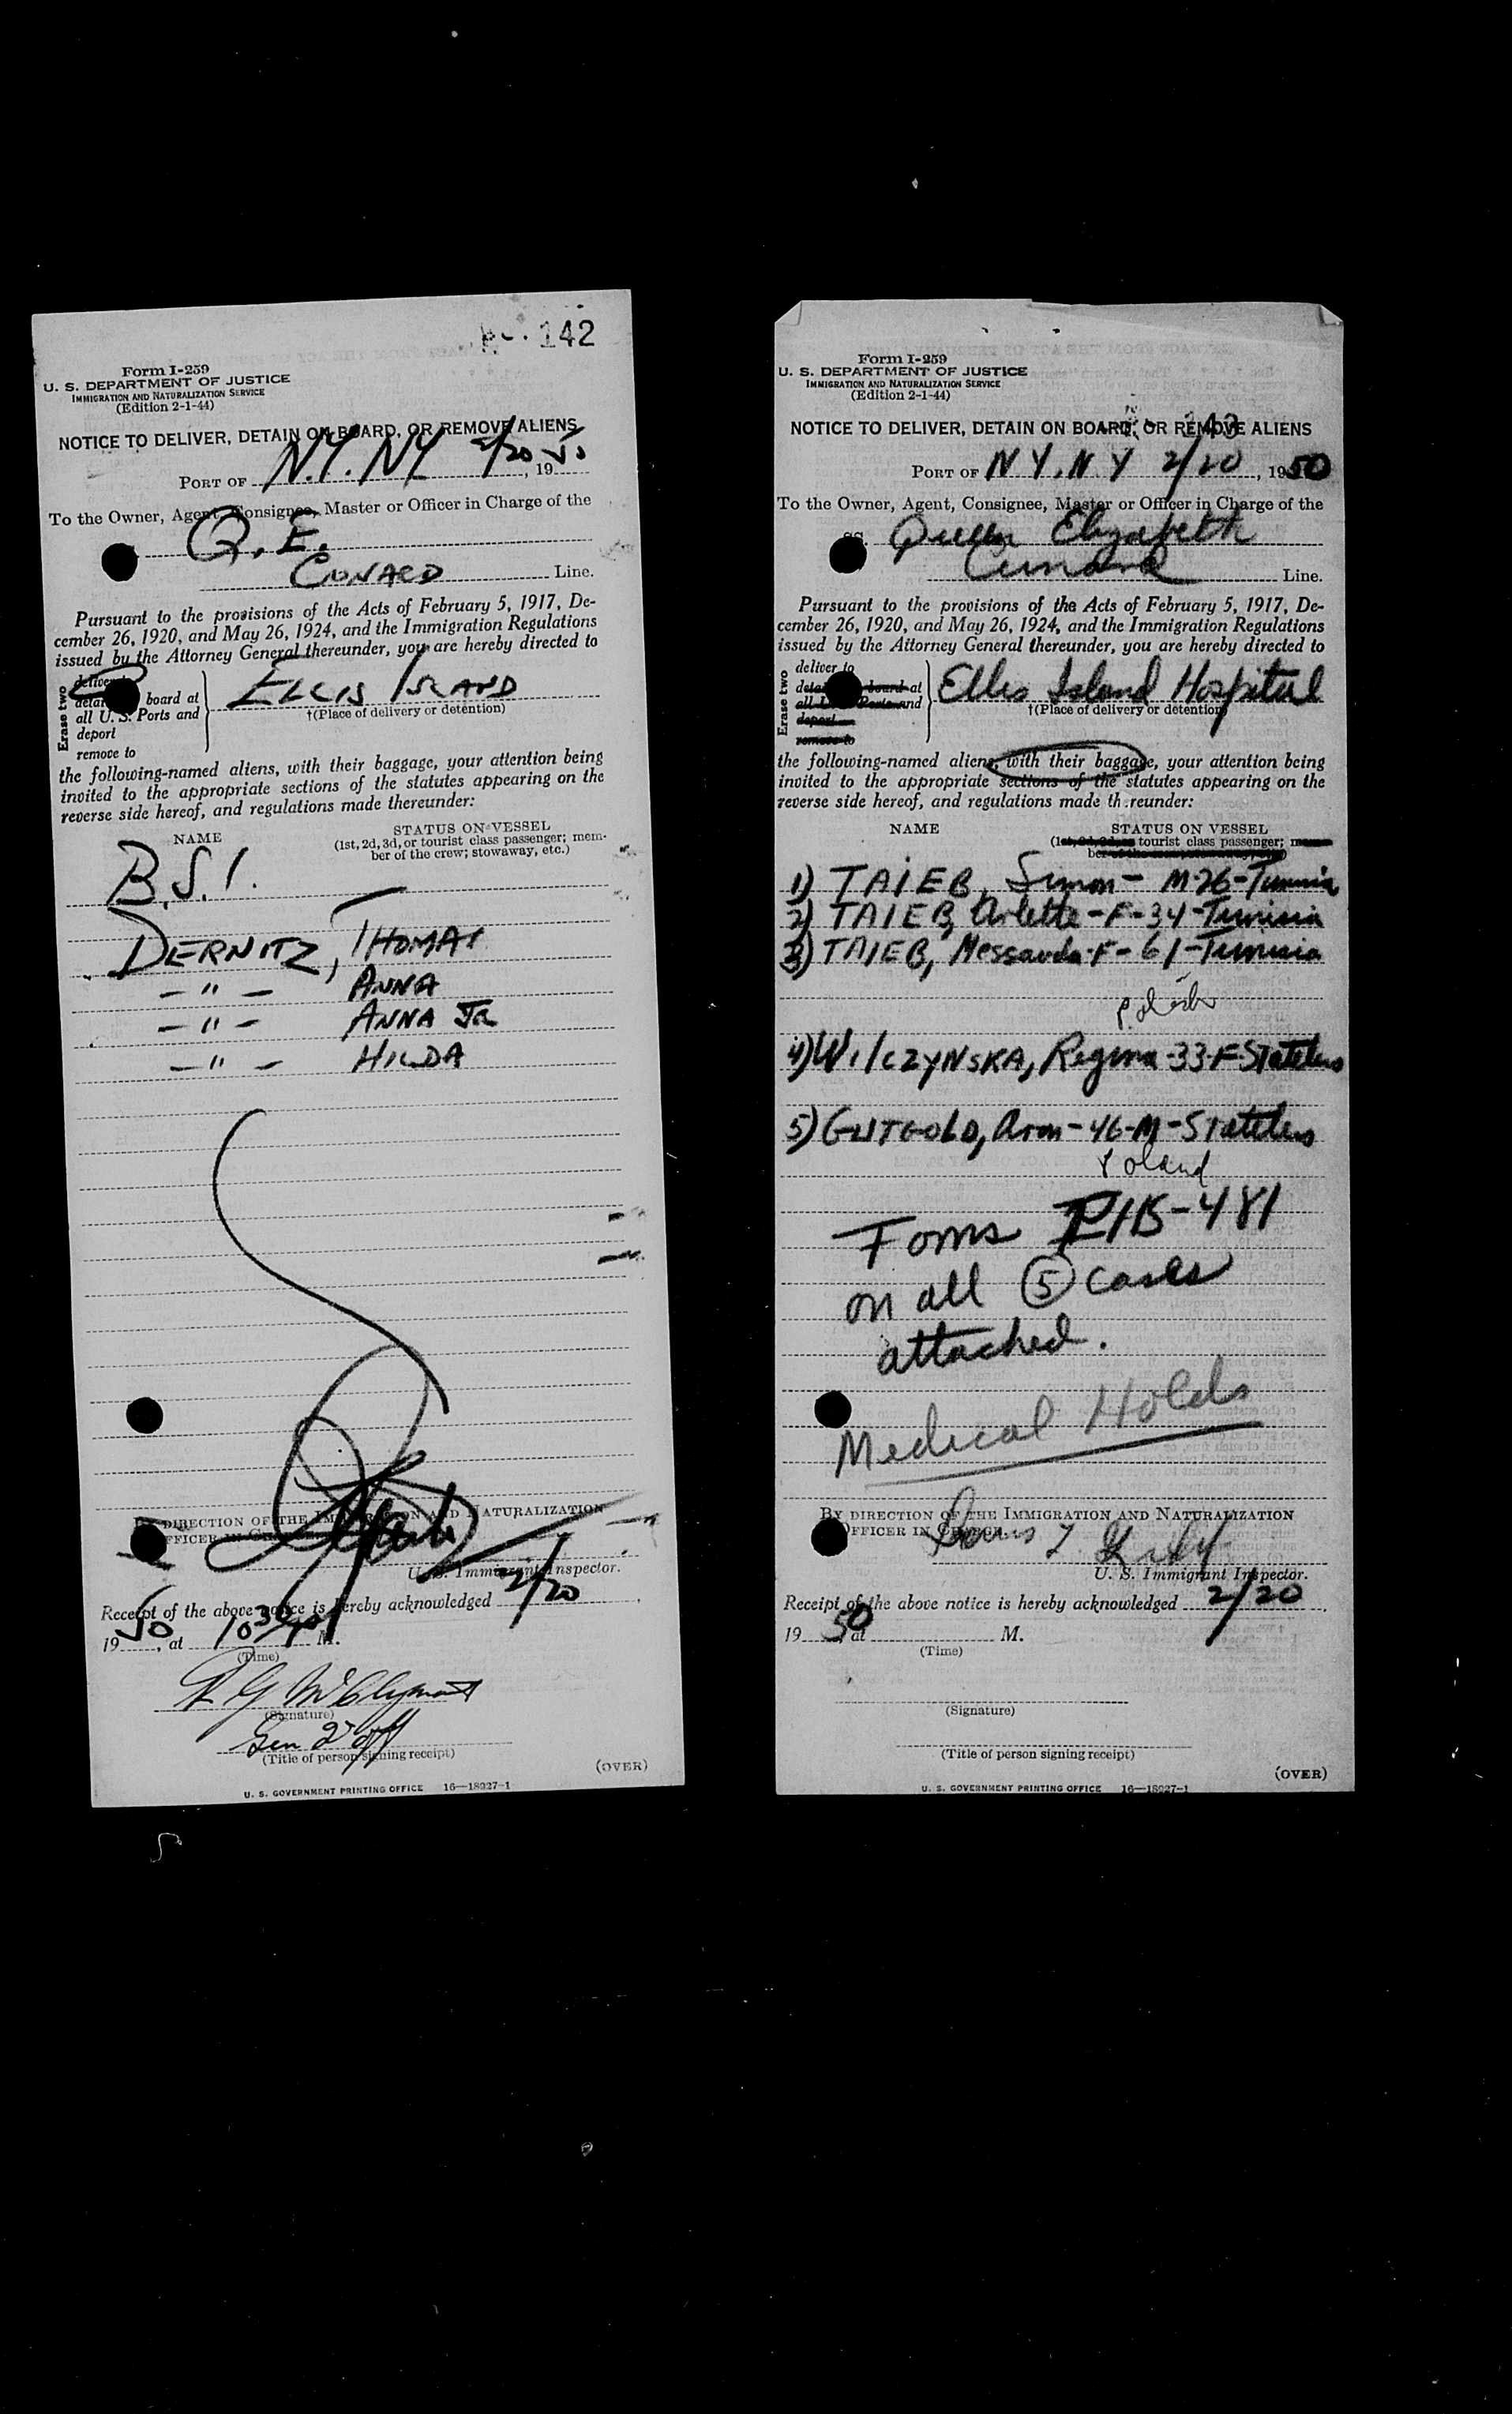 142
Form I-259
U. S. DEPARTMENT OF JUSTICE
IMMIGRATION AND NATURALIZATION SERVICE
(Edition 2-1-44)
NOTICE TO DELIVER, DETAIN ON BOARD, OR REMOVE ALIENS
PORT OF N.Y. NY 2/20, 1950
To the Owner, Agent, Consignee, Master or Officer in Charge of the
Q.E.
CUNARD Line.
Pursuant to the provisions of the Acts of February 5, 1917, De-
cember 26, 1920, and May 26, 1924, and the Immigration Regulations
issued by the Attorney General thereunder, you are hereby directed to
Erase two
deliver
board at
all U. S. Ports and
deport
remove to
ELLIS ISLAND
†(Place of delivery or detention)
the following-named aliens, with their baggage, your attention being
invited to the appropriate sections of the statutes appearing on the
reverse side hereof, and regulations made thereunder:
NAME
STATUS ON VESSEL
(1st, 2d, 3d, or tourist class passenger; mem-
ber of the crew; stowaway, etc.)
B.S.I.
DERNITZ, THOMAS
-"- ANNA
-"- ANNA JR
-"- HILDA
BY DIRECTION OF THE IMMIGRATION AND NATURALIZATION
OFFICER IN CHARGE
U. S. Immigrant Inspector.
Receipt of the above notice is hereby acknowledged 2/20,
1950, at 10 30 M.
(Time)
(Signature)
(Title of person signing receipt)
(OVER)
U. S. GOVERNMENT PRINTING OFFICE 16—18027-1
Form I-259
U. S. DEPARTMENT OF JUSTICE
IMMIGRATION AND NATURALIZATION SERVICE
(Edition 2-1-44)
143
NOTICE TO DELIVER, DETAIN ON BOARD, OR REMOVE ALIENS
PORT OF N Y. N Y 2/20, 1950
To the Owner, Agent, Consignee, Master or Officer in Charge of the
SS. Queen Elizabeth
Cunard Line.
Pursuant to the provisions of the Acts of February 5, 1917, De-
cember 26, 1920, and May 26, 1924, and the Immigration Regulations
issued by the Attorney General thereunder, you are hereby directed to
Erase two
deliver to
board at
all U. S. Ports and
deport
remove to
Ellis Island Hospital
†(Place of delivery or detention)
the following-named aliens, with their baggage, your attention being
invited to the appropriate sections of the statutes appearing on the
reverse side hereof, and regulations made thereunder:
NAME
STATUS ON VESSEL
(1st, 2d, 3d, or tourist class passenger; mem-
1) TAIEB, Simon - M-26-Tunisia
2) TAIEB, Arlette - F-34-Tunisia
3) TAIEB, Messauda-F-61-Tunisia
4) WILCZYNSKA, Regina-33-F-Stateless
5) GUTGOLD, Aron-46-M-Stateless
Poland
Foms PIB-481
on all 5 cases
attached.
Medical Holds
BY DIRECTION OF THE IMMIGRATION AND NATURALIZATION
OFFICER IN CHARGE
U. S. Immigrant Inspector.
Receipt of the above notice is hereby acknowledged 2/20,
1950, at M.
(Time)
(Signature)
(Title of person signing receipt)
(OVER)
U. S. GOVERNMENT PRINTING OFFICE 16—18027-1